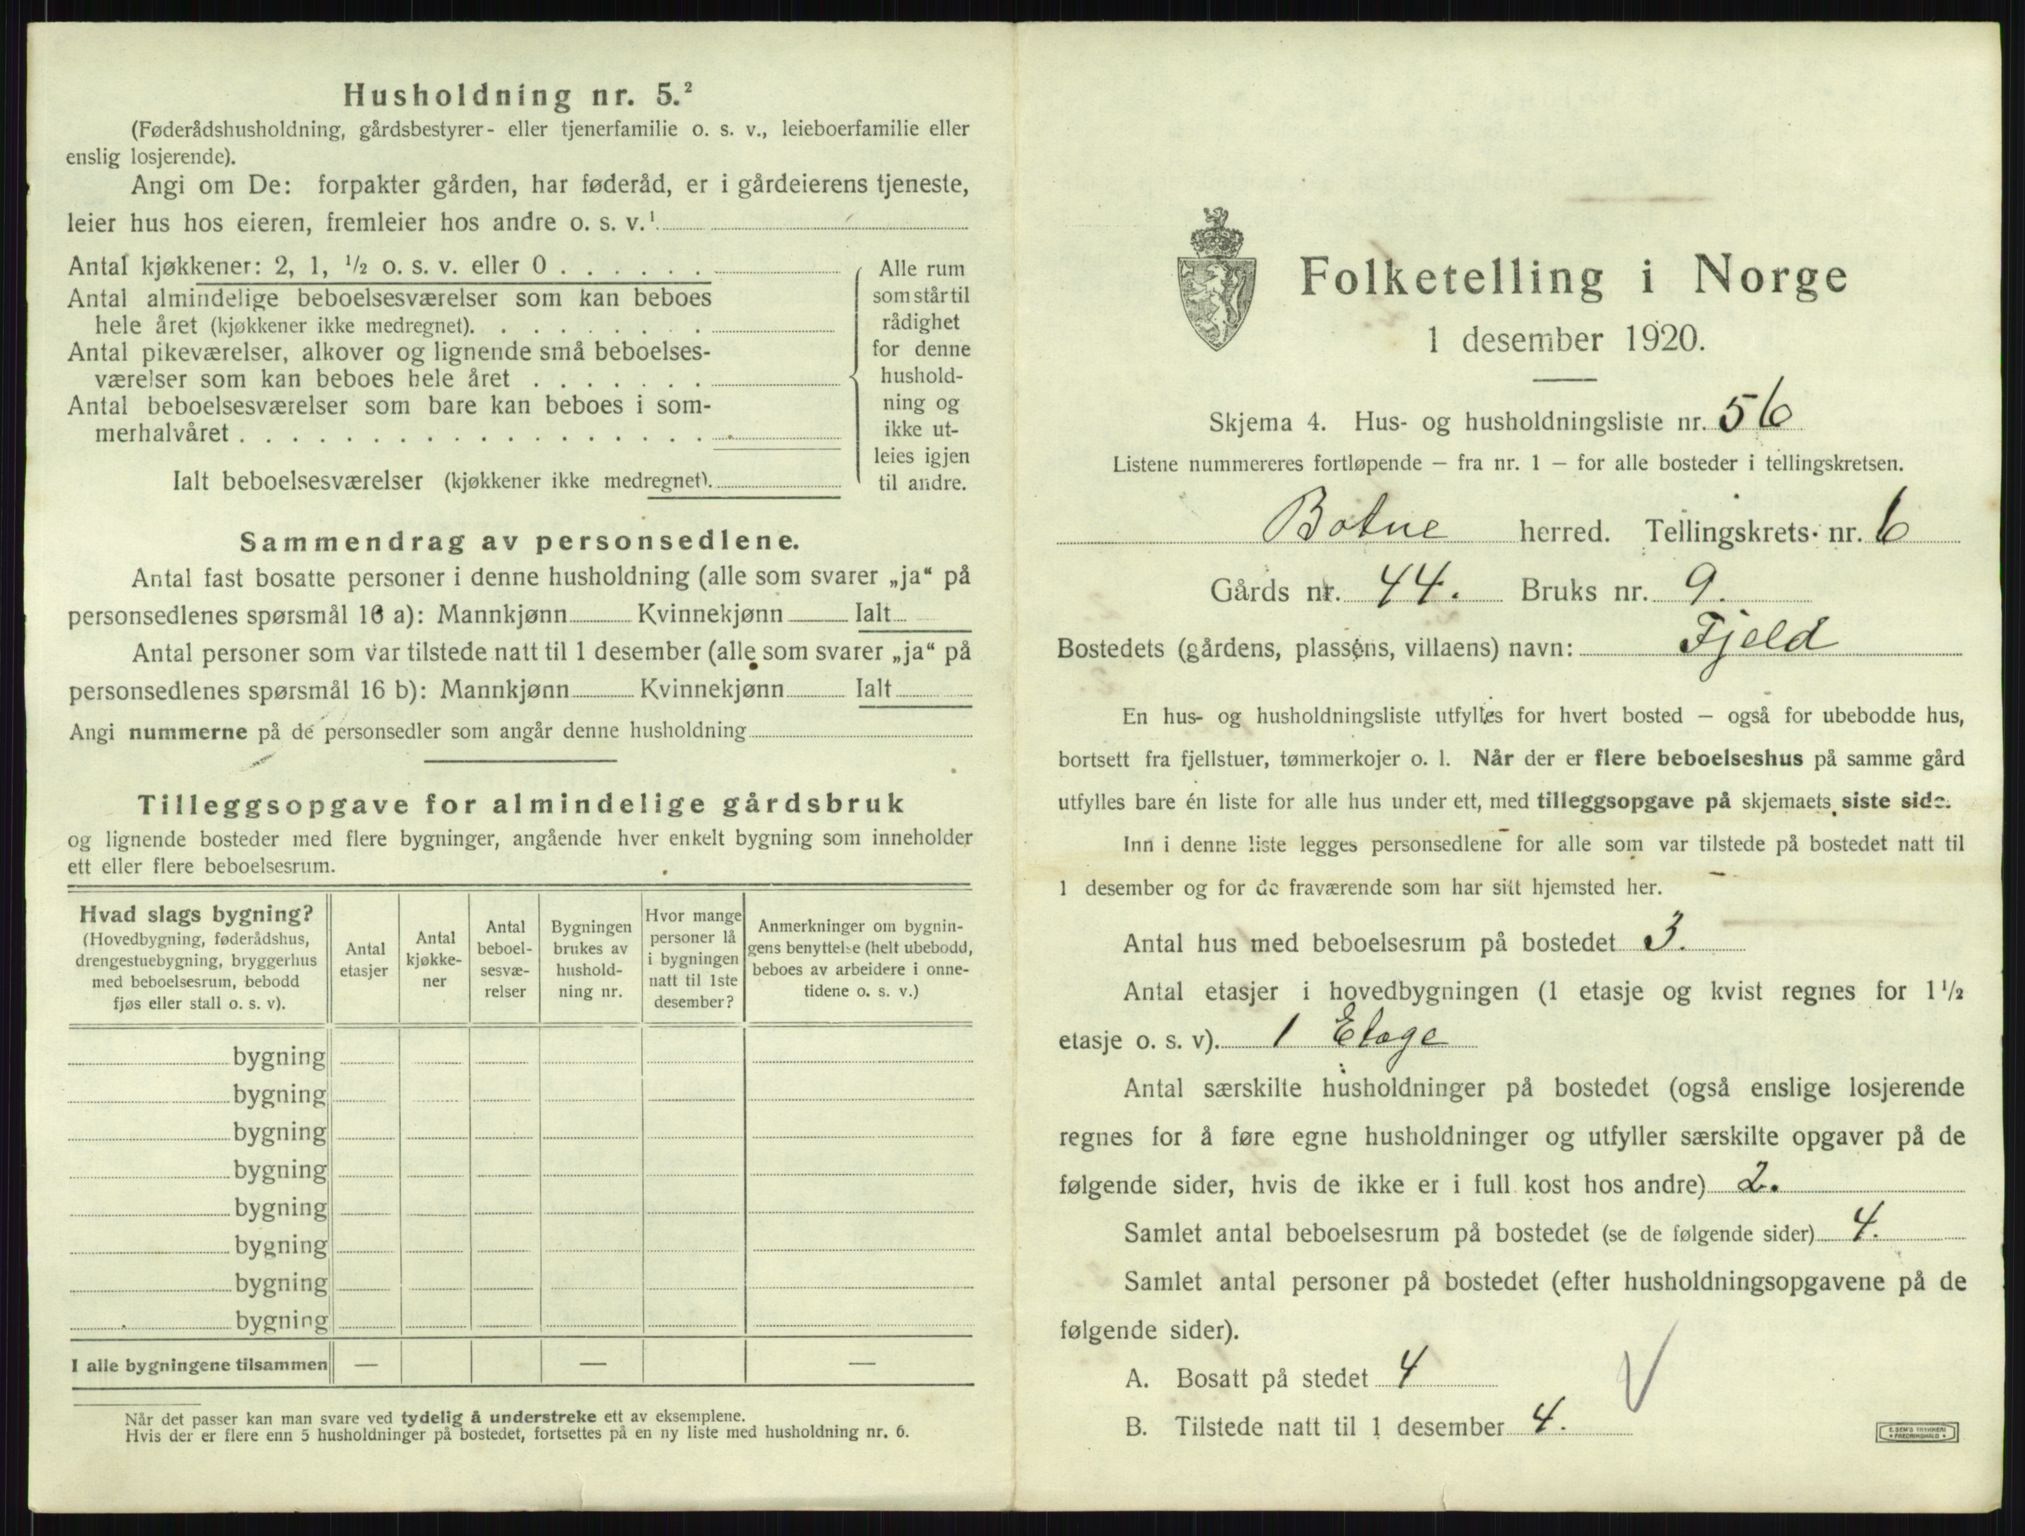 Husholdning nr. 5.²
(Føderådshusholdning, gårdsbestyrer- eller tjenerfamilie o. s. v., leieboerfamilie eller
enslig losjerende).
Angi om De: forpakter gården, har føderåd, er i gårdeierens tjeneste,
leier hus hos eieren, fremleier hos andre o. s. v.¹
Antal kjøkkener: 2, 1, ½ o. s. v. eller 0 . . . . . .
Antal almindelige beboelsesværelser som kan beboes
hele året (kjøkkener ikke medregnet). . . . . . . .
Antal pikeværelser, alkover og lignende små beboelses-
værelser som kan beboes hele året . . . . . . .
Antal beboelsesværelser som bare kan beboes i som-
merhalvåret . . . . . . . . . . . . . . . . . .
Ialt beboelsesværelser (kjøkkener ikke medregnet).
Alle rum
som står til
rådighet
for denne
hushold-
ning og
ikke ut-
leies igjen
til andre.
Sammendrag av personsedlene.
Antal fast bosatte personer i denne husholdning (alle som svarer „ja“ på
personsedlenes spørsmål 16 a): Mannkjønn Kvinnekjønn Ialt
Antal personer som var tilstede natt til 1 desember (alle som svarer „ja“ på
personsedlenes spørsmål 16 b): Mannkjønn Kvinnekjønn Ialt
Angi nummerne på de personsedler som angår denne husholdning
Tilleggsopgave for almindelige gårdsbruk
og lignende bosteder med flere bygninger, angående hver enkelt bygning som inneholder
ett eller flere beboelsesrum.
Hvad slags bygning?
(Hovedbygning, føderådshus,
drengestuebygning, bryggerhus
med beboelsesrum, bebodd
fjøs eller stall o. s. v).
Antal
etasjer
Antal
kjøkke-
ner
Antal
beboel-
sesvæ-
relser
Bygningen
brukes av
hushold-
ning nr.
Hvor mange
personer lå
i bygningen
natt til 1ste
desember?
Anmerkninger om bygnin-
gens benyttelse (helt ubebodd,
beboes av arbeidere i onne-
tidene o. s. v.)
bygning
bygning
bygning
bygning
bygning
bygning
bygning
bygning
I alle bygningene tilsammen — — —
Når det passer kan man svare ved tydelig å understreke ett av eksemplene.
Hvis der er flere enn 5 husholdninger på bostedet, fortsettes på en ny liste med husholdning nr. 6.
Folketelling i Norge
1 desember 1920.
Skjema 4. Hus- og husholdningsliste nr. 56
Listene nummereres fortløpende – fra nr. 1 – for alle bosteder i tellingskretsen.
Botne herred. Tellingskrets nr. 6
Gårds nr. 44. Bruks nr. 9.
Bostedets (gårdens, plassens, villaens) navn: Fjeld
En hus- og husholdningsliste utfylles for hvert bosted – også for ubebodde hus,
bortsett fra fjellstuer, tømmerkojer o. l. Når der er flere beboelseshus på samme gård
utfylles bare én liste for alle hus under ett, med tilleggsopgave på skjemaets siste side.
Inn i denne liste legges personsedlene for alle som var tilstede på bostedet natt til
1 desember og for de fraværende som har sitt hjemsted her.
Antal hus med beboelsesrum på bostedet 3.
Antal etasjer i hovedbygningen (1 etasje og kvist regnes for 1½
etasje o. s. v). 1 Etage
Antal særskilte husholdninger på bostedet (også enslige losjerende
regnes for å føre egne husholdninger og utfyller særskilte opgaver på de
følgende sider, hvis de ikke er i full kost hos andre) 2.
Samlet antal beboelsesrum på bostedet (se de følgende sider) 4.
Samlet antal personer på bostedet (efter husholdningsopgavene på de
følgende sider).
A. Bosatt på stedet 4
B. Tilstede natt til 1 desember 4.
E. SEM'S TRYKKERI
FREDRIKSHALD